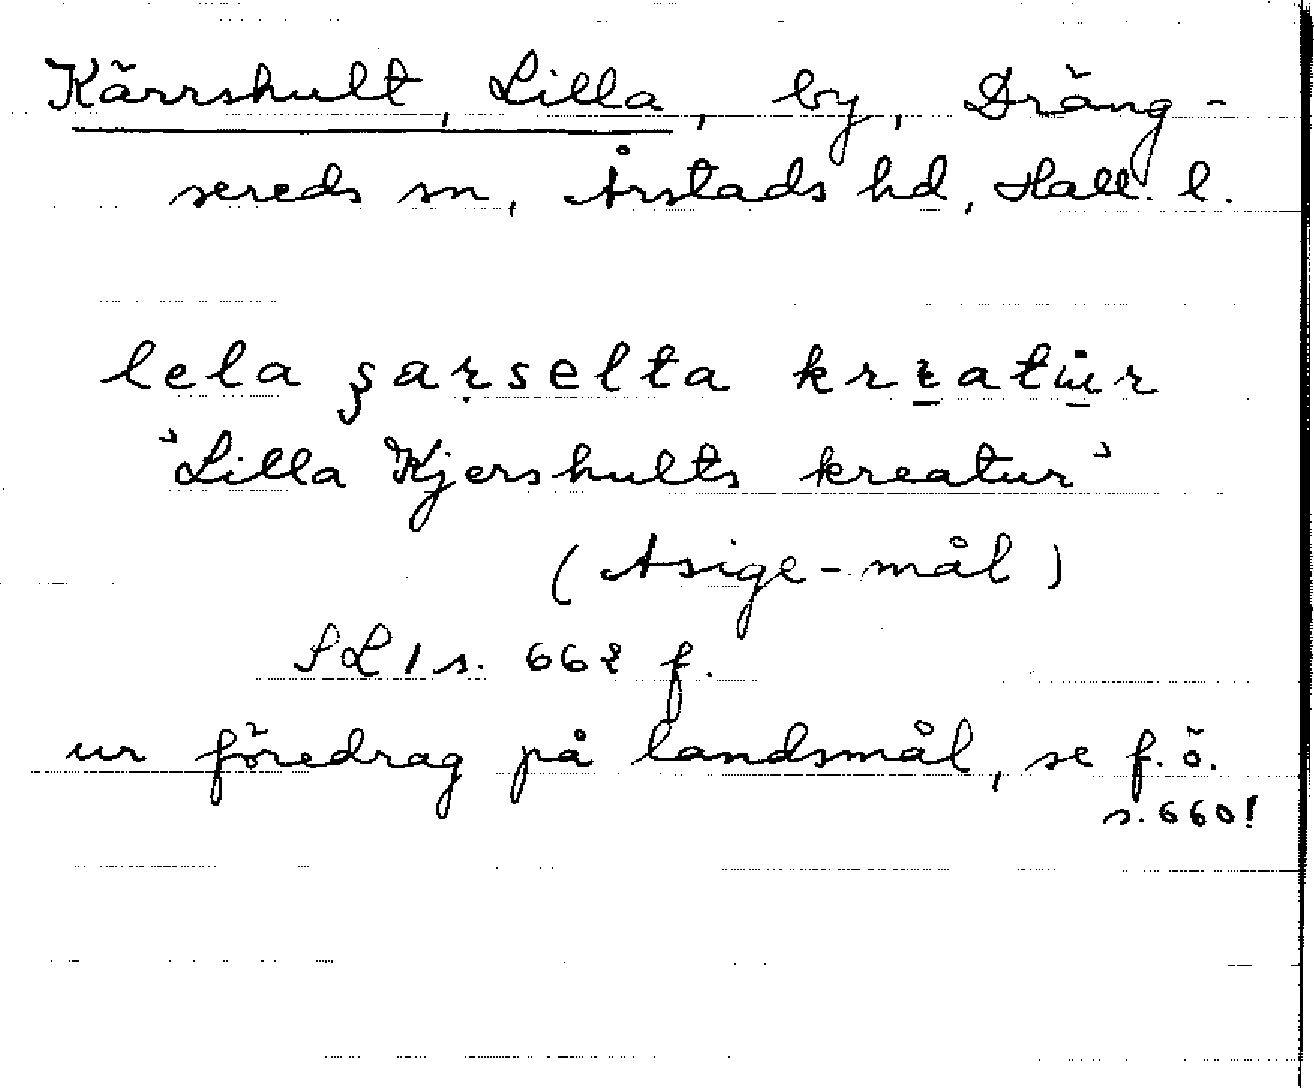 Kärrshult, Lilla, by, Dräng-
sereds sn, Årstads hd, Hall. l.
lela şaṛselta kreatur
"Lilla Kjershults kreatur"
(Asige-mål)
SL 1 s. 662 f.
ur föredrag på landsmål, se f.ö.
s. 660!